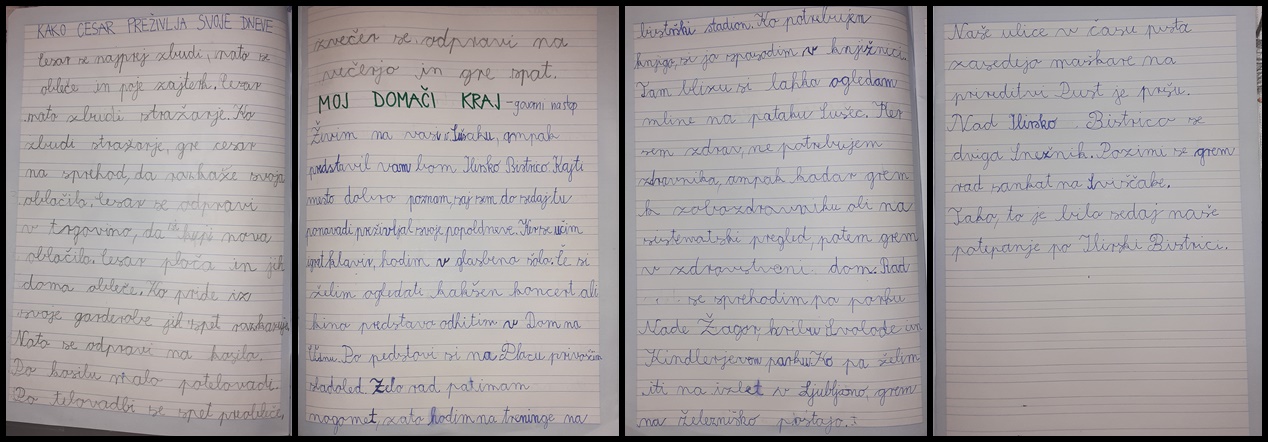 KAKO CESAR PREŽIVLJA SVOJE DNEVE
Cesar se najprej zbudi, nato se
obleče in poje zajterk. Cesar
nato zbudi stražarje. Ko
zbudi stražarje, gre cesar
na sprehod, da razkaže svoja
oblačila. Cesar se odpravi
v trgovino, da kupi nova
oblačila. Cesar plača in jih
doma obleče. Ko pride iz
svoje garderobe jih spet razkazuje.
Nato se odpravi na kosilo.
Po kosilu malo potelovadi.
Po telovadbi se spet preobleče,
zvečer se odpravi na
večerjo in gre spat.
MOJ DOMAČI KRAJ - govorni nastop
Živim na vasi, ampak
predstavil vam bom Ilirsko Bistrico. Kajti
mesto dobro poznam, saj sem do sedaj tu
ponavadi preživljal svoje popoldneve. Ker se učim
igrat klavir, hodim v glasbeno šolo. Če si
želim ogledati kakšen koncert ali
kino predstavo odhitim v Dom na
Vidmu. Po pedstavi si na Placu privoščim
sladoled. Zelo rad patimam
nogomet, zato hodim na treninge na
bistriški stadion. Ko potrebujem
knjigo, si jo sposodim v knjižnici.
Tam blizu si lahko ogledam
mline na potoku Sušec. Ker
sem zdrav, ne potrebujem
zdravnika, ampak kadar grem
k zobozdravniku ali na
sistematski pregled, potem grem
v zdravstveni dom. Rad
se sprehodim po parku
Nade Žagar, hribu Svobode in
Kindlerjevem parku. Ko pa želim
iti na izlet v Ljubljano, grem
na železniško postajo.
Naše ulice v času pusta
zasedejo maškare na
prireditvi Pust je pršu.
Nad Ilirsko Bistrico se
dviga Snežnik. Pozimi se grem
rad sankat na Sviščake.
Tako, to je bilo sedaj naše
potepanje po Ilirski Bistrici.